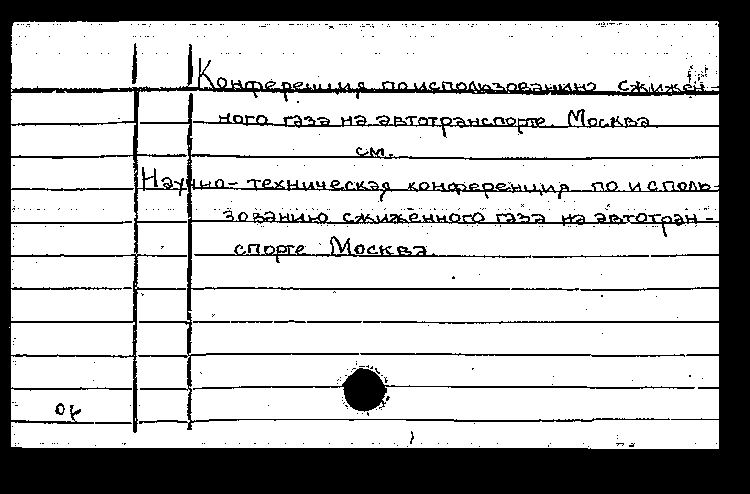 Конференция по использованию сжижен-
ного газа на автотранспорте. Москва
см.
Научно-техническая конференция по исполь-
зованию сжиженного газа на автотран-
спорте Москва.